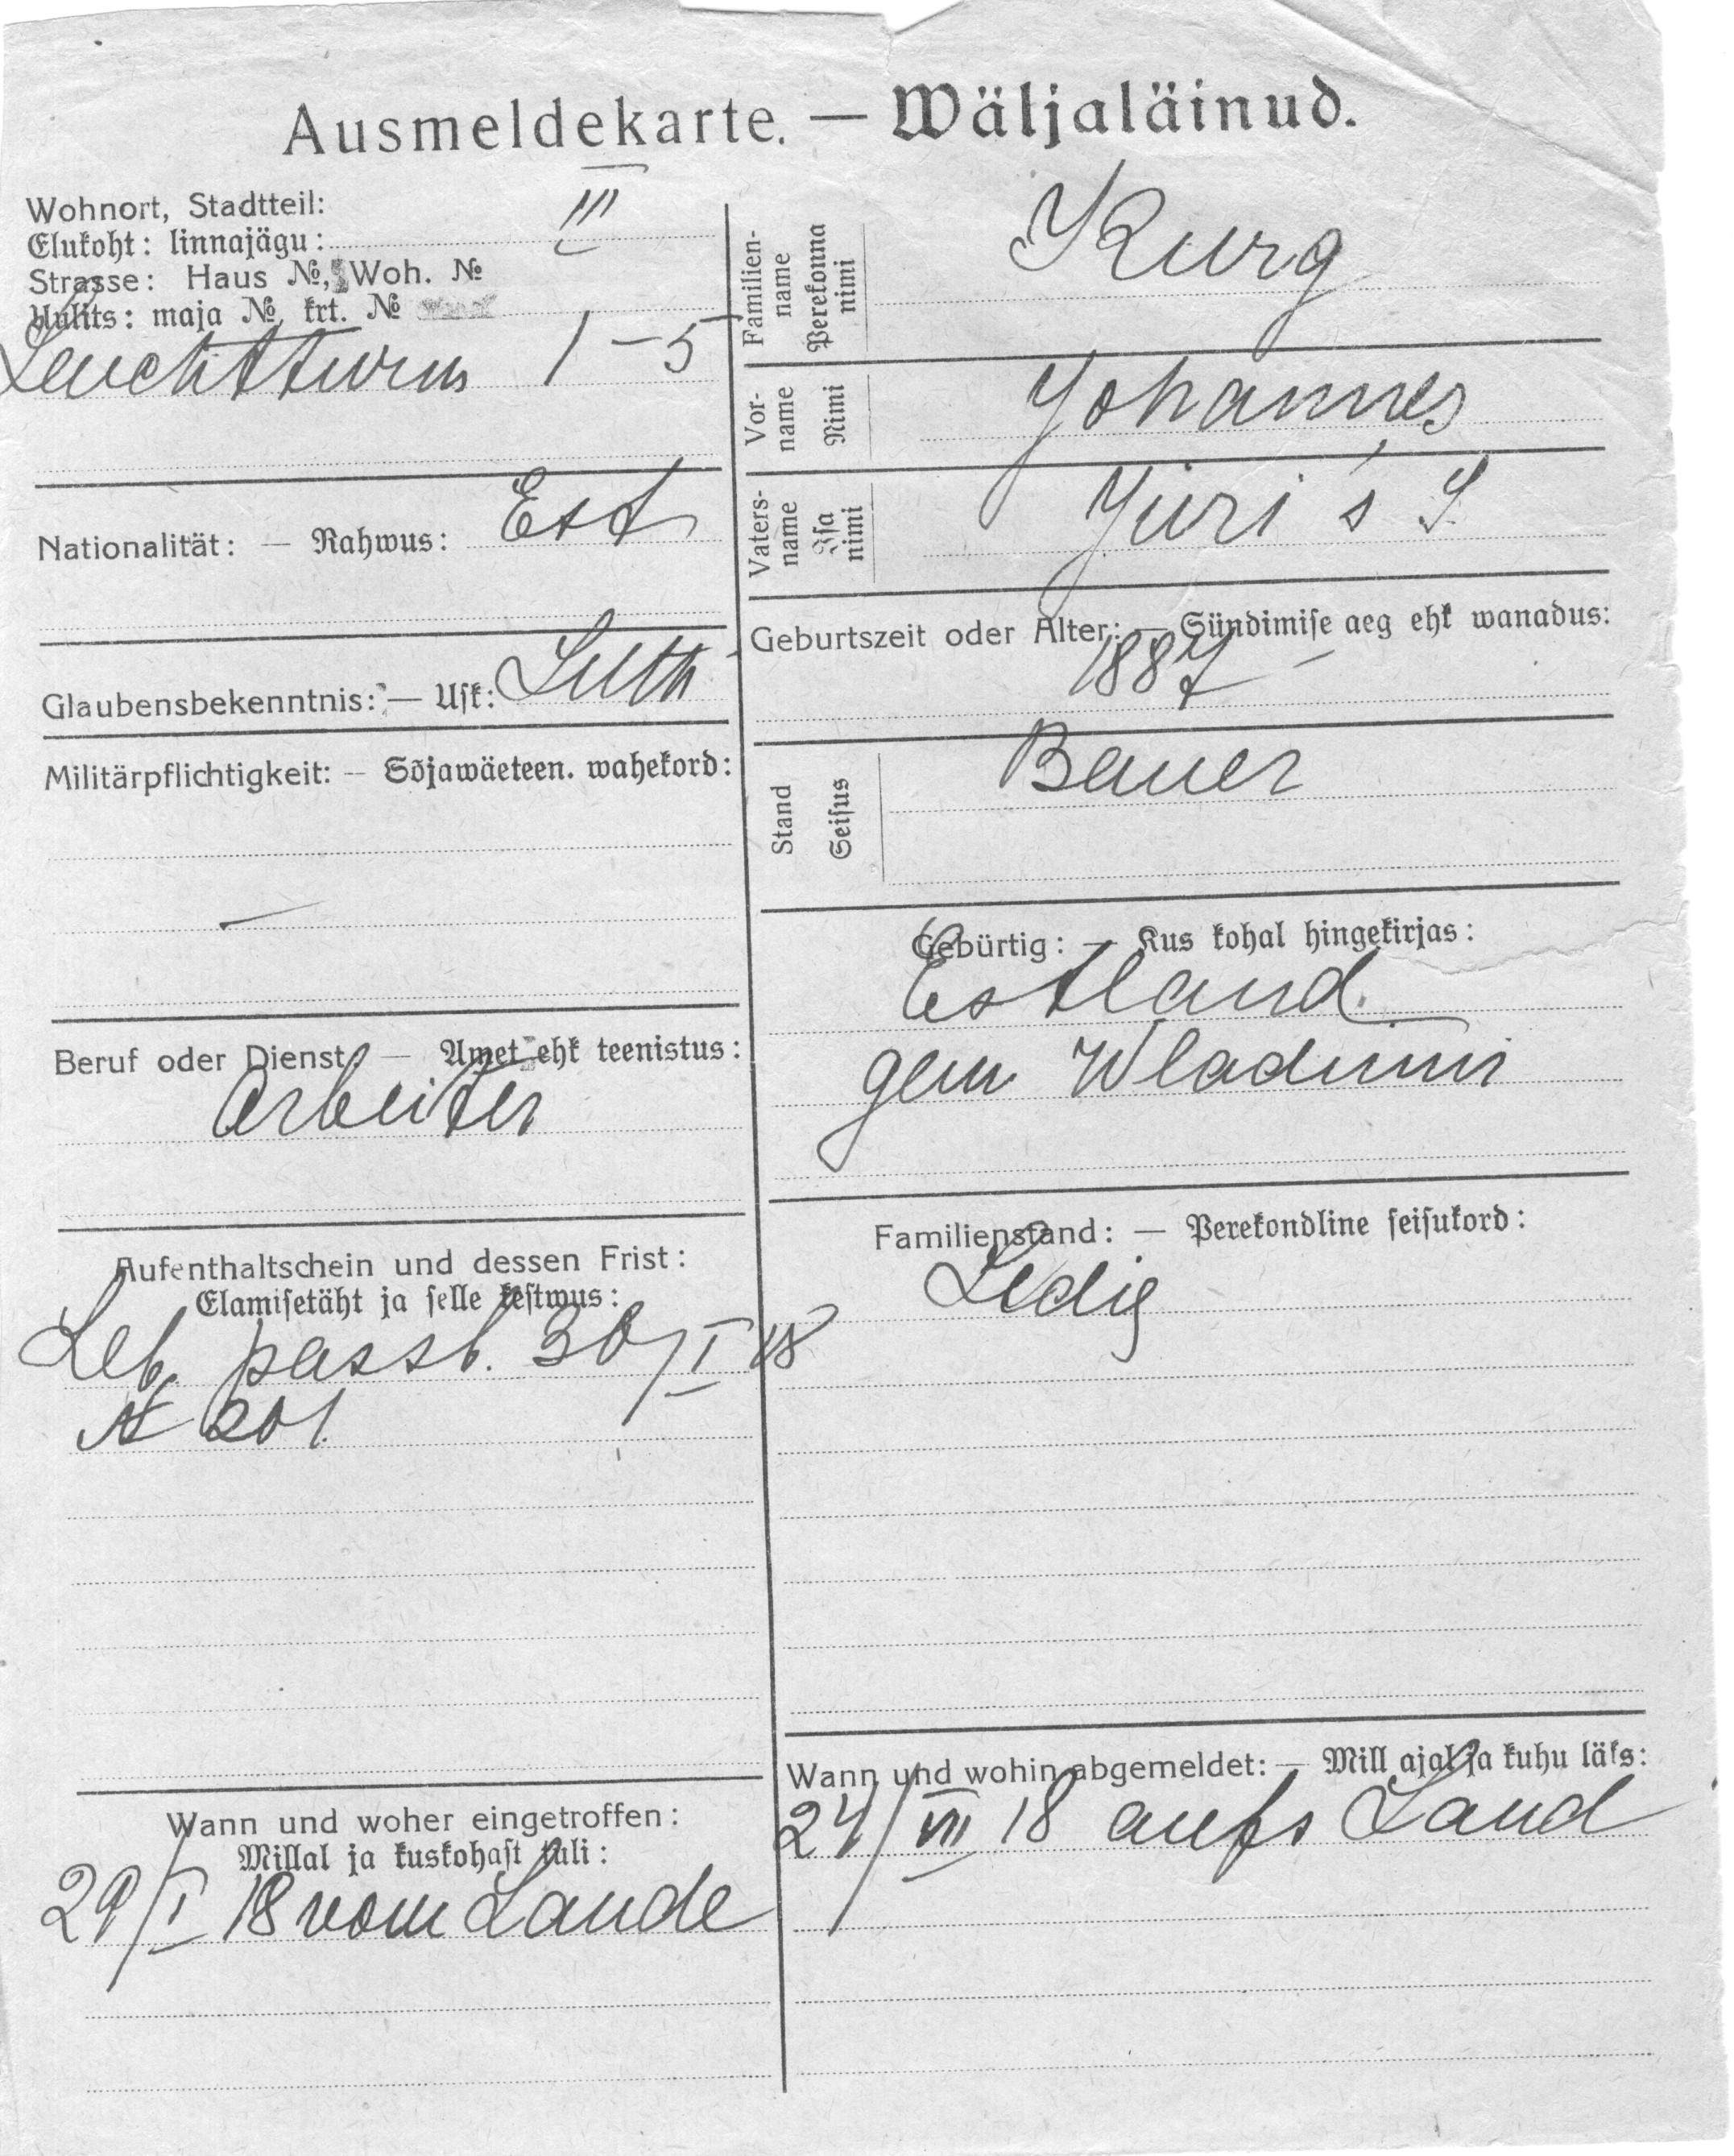 Ausmeldekarte. — Wäljaläinud.
Wohnort, Stadtteil:
Elukoht: linnajägu: III
Strasse: Haus №, Woh. №
Uulits: maja №, krt. №
Leuchtturm 1 – 5
Nationalität: — Rahwus: Est
Glaubensbekenntnis: — Usk: Luth
Militärpflichtigkeit: — Sõjawäeteen. wahekord:
—
Beruf oder Dienst — Amet ehk teenistus:
Arbeiter
Aufenthaltschein und dessen Frist:
Elamisetäht ja selle kestwus:
Leb. passb. 30/I 18
№ 201.
Wann und woher eingetroffen:
Millal ja kuskohast tuli:
29/I 18 vom Lande
Familien-
name
Perekonna
nimi
Kurg
Vor-
name
Nimi
Johannes
Vaters-
name
Isa
nimi
Jüri's S.
Geburtszeit oder Alter: — Sündimise aeg ehk wanadus:
1887
Stand
Seisus
Bauer
Gebürtig: — Kus kohal hingekirjas:
Estland.
gem Wladimir
Familienstand: — Perekondline seisukord:
Ledig
Wann und wohin abgemeldet: — Mill ajal ja kuhu läks:
24/VII 18 aufs Land